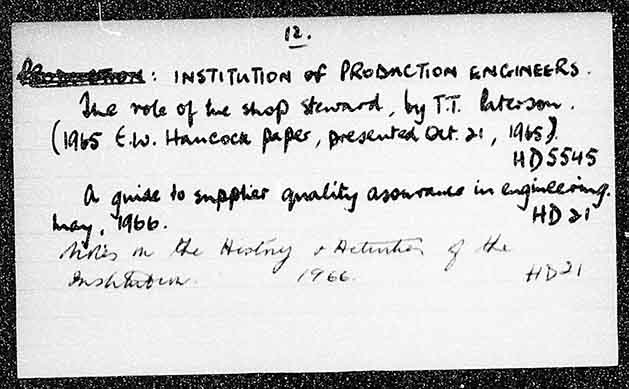 12.
: INSTITUTION OF PRODUCTION ENGINEERS.
The role of the shop steward, by T.T. Paterson.
(1965 E.W. Hancock paper, presented Oct. 21, 1965).
HD5545
A guide to supplier quality assurance in engineering.
May, 1966. HD21
Notes on the History & Activities of the
Institution. 1966. HD21